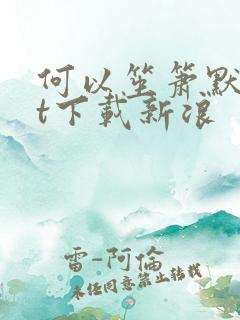 何以笙箫默
t下载新浪
雷-阿倫
未经同意禁止转载